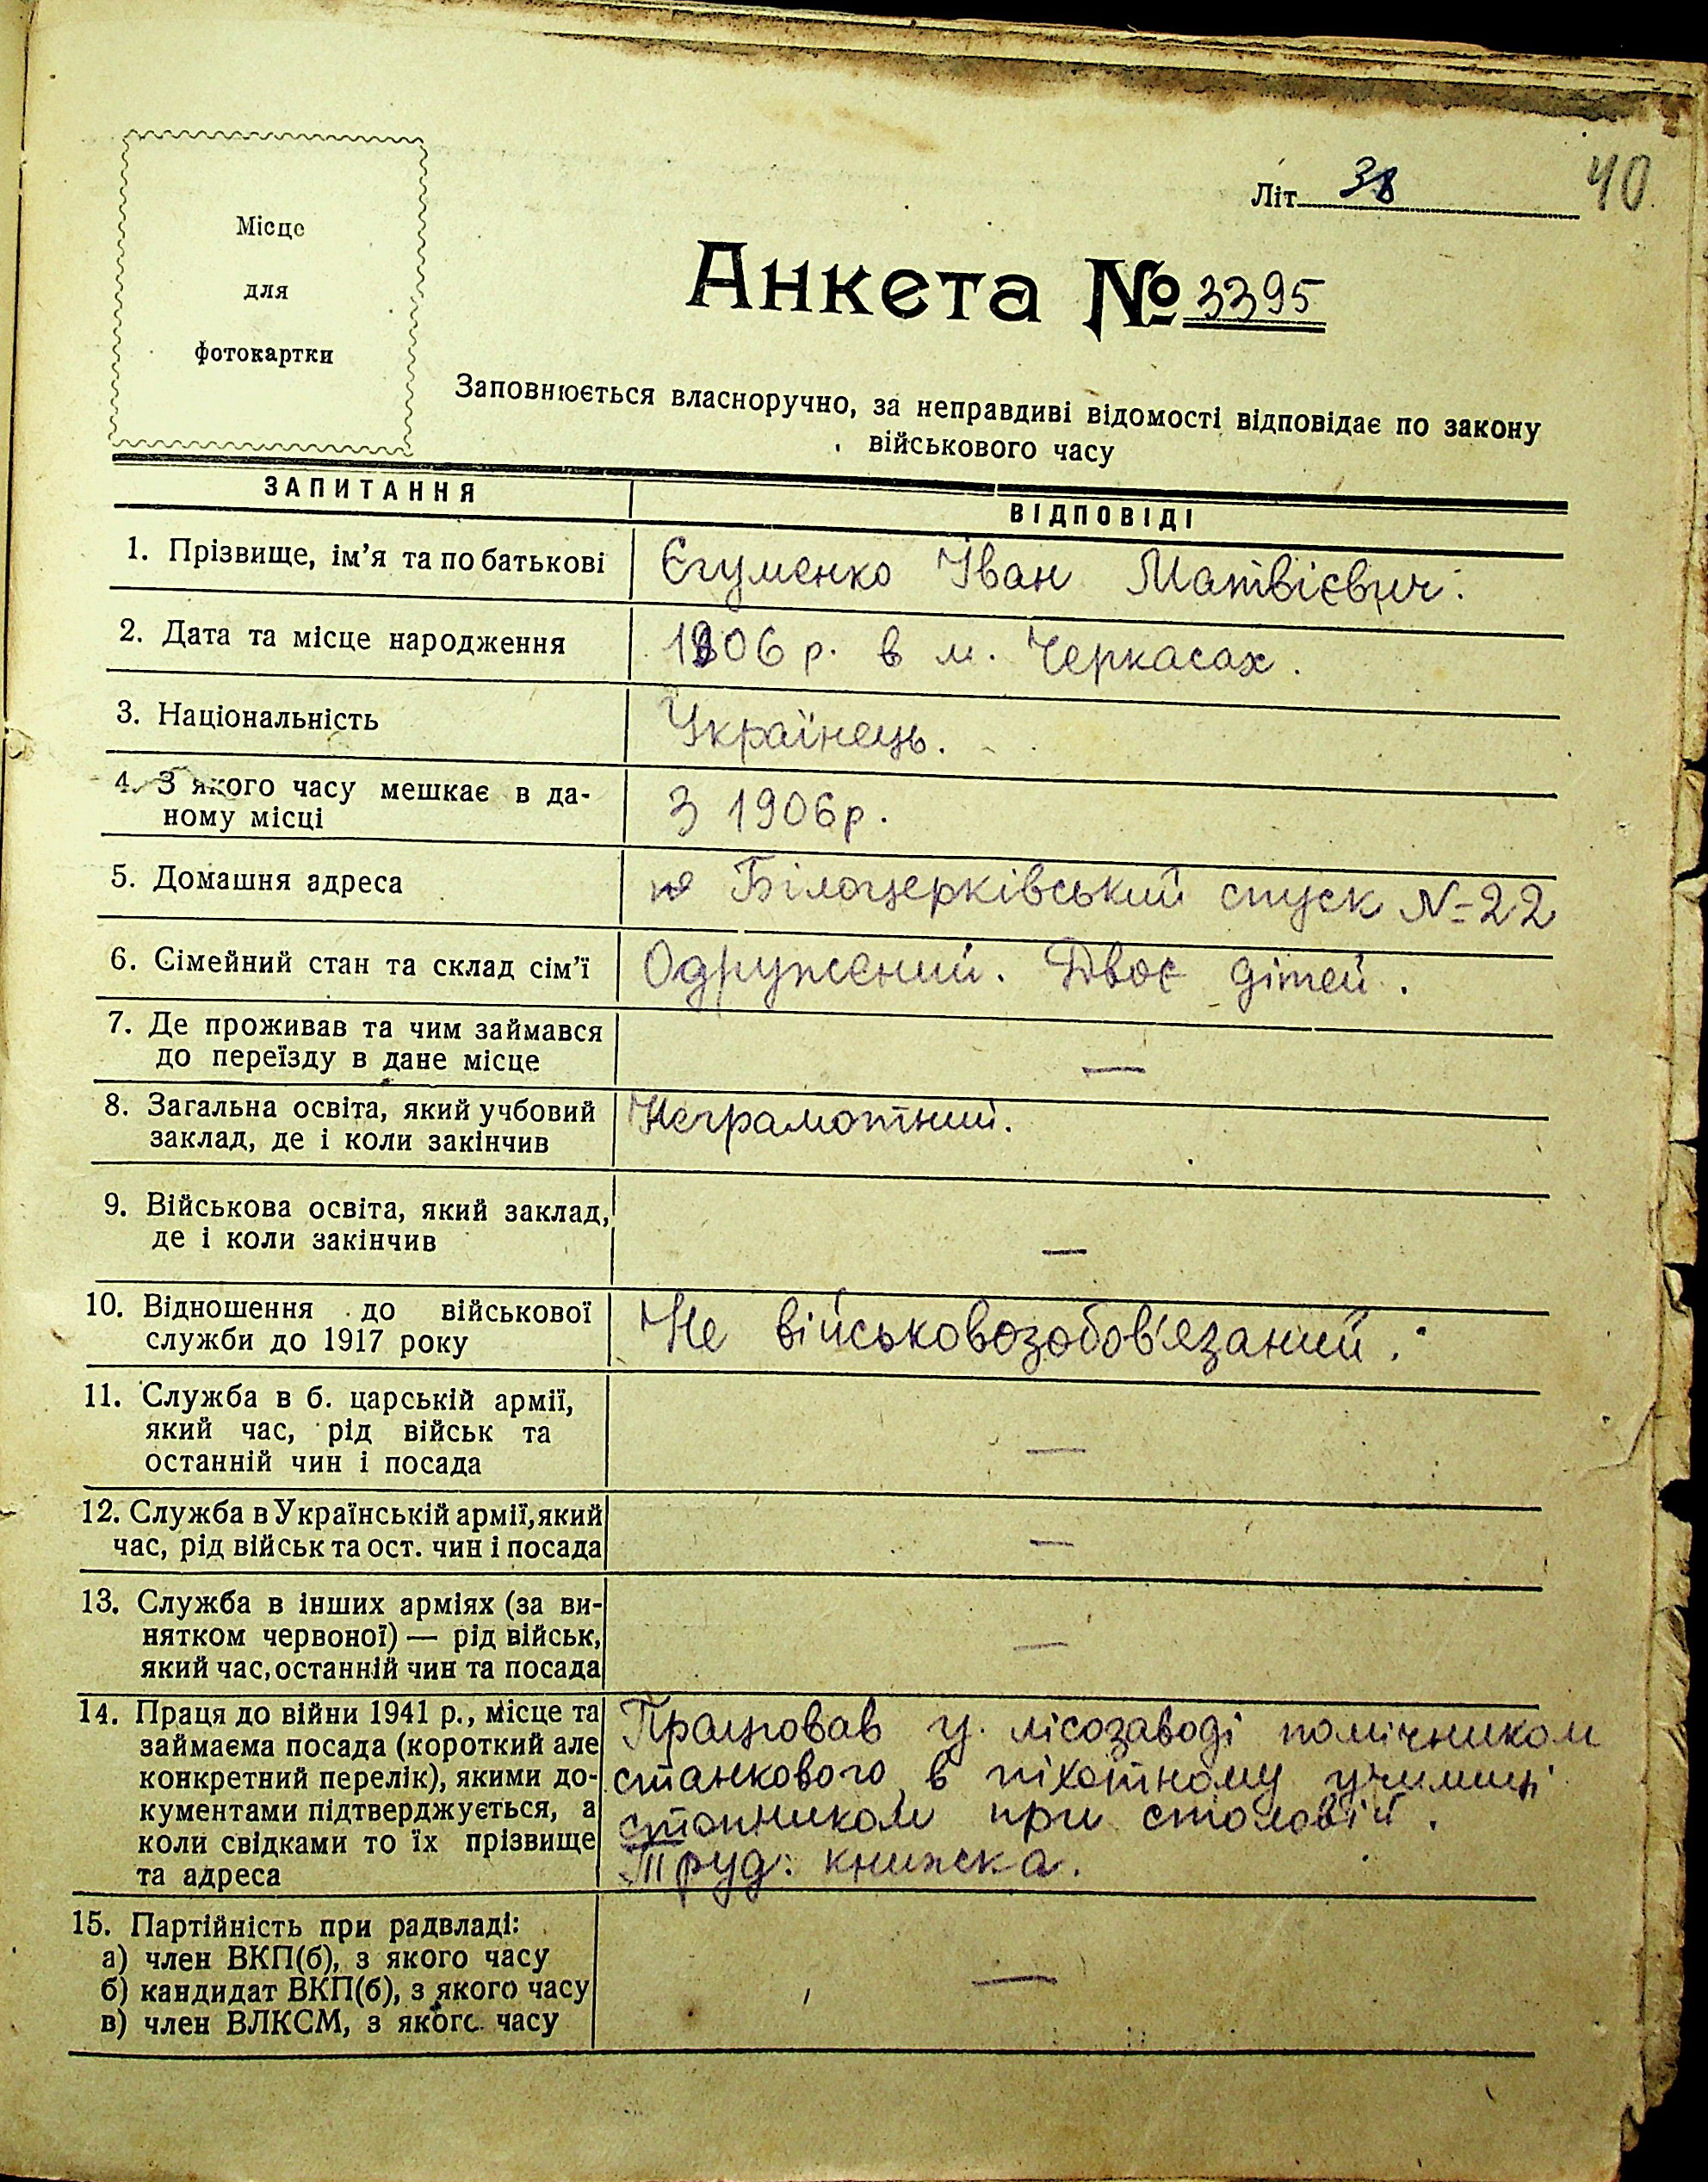 Місце
для
фотокартки
Літ. 38
40
Анкета № 3395
Заповнюється власноручно, за неправдиві відомості відповідає по закону
військового часу
ЗАПИТАННЯ
ВІДПОВІДІ
1. Прізвище, ім'я та по батькові
Єгуменко Іван Матвієвич.
2. Дата та місце народження
1906 р. в м. Черкасах.
3. Національність
Українець.
4. З якого часу мешкає в да-
ному місці
З 1906 р.
5. Домашня адреса
Білоцерківський спуск № 22
6. Сімейний стан та склад сім'ї
Одружений. Двоє дітей.
7. Де проживав та чим займався
до переїзду в дане місце
—
8. Загальна освіта, який учбовий
заклад, де і коли закінчив
Неграмотний.
9. Військова освіта, який заклад,
де і коли закінчив
—
10. Відношення до військової
служби до 1917 року
Не військовозобов'язаний.
11. Служба в б. царській армії,
який час, рід військ та
останній чин і посада
—
12. Служба в Українській армії, який
час, рід військ та ост. чин і посада
—
13. Служба в інших арміях (за ви-
нятком червоної) — рід військ,
який час, останній чин та посада
—
14. Праця до війни 1941 р., місце та
займаєма посада (короткий але
конкретний перелік), якими до-
кументами підтверджується, а
коли свідками то їх прізвище
та адреса
Працював у лісозаводі помічником
станкового, в піхотному училищі
при столовій.
Труд. книжка.
15. Партійність при радвладі:
а) член ВКП(б), з якого часу
б) кандидат ВКП(б), з якого часу
в) член ВЛКСМ, з якого часу
—